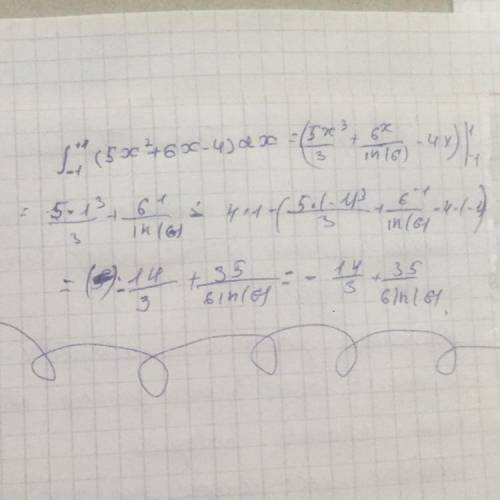 ∫₋₁⁺¹ (5x²+6x-4)dx = (5x³/3 + 6ˣ/ln(6) - 4x)|₋₁¹
= 5·1³/3 + 6¹/ln(6) - 4·1 - (5·(-1)³/3 + 6⁻¹/ln(6) - 4·(-1)
= - 14/3 + 35/6ln(6) = - 14/3 + 35/6ln(6)